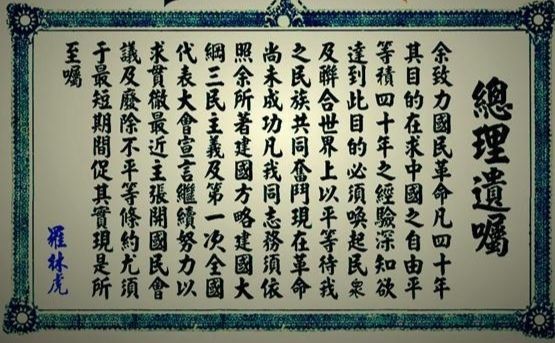 總理遺囑
余致力國民革命凡四十年
其目的在求中國之自由平
等積四十年之經驗深知欲
達到此目的必須喚起民衆
及聯合世界上以平等待我
之民族共同奮鬥現在革命
尚未成功凡我同志務須依
照余所著建國方略建國大
綱三民主義及第一次全國
代表大會宣言繼續努力以
求貫徹最近主張開國民會
議及廢除不平等條約尤須
于最短期間促其實現是所
至囑
羅林虎